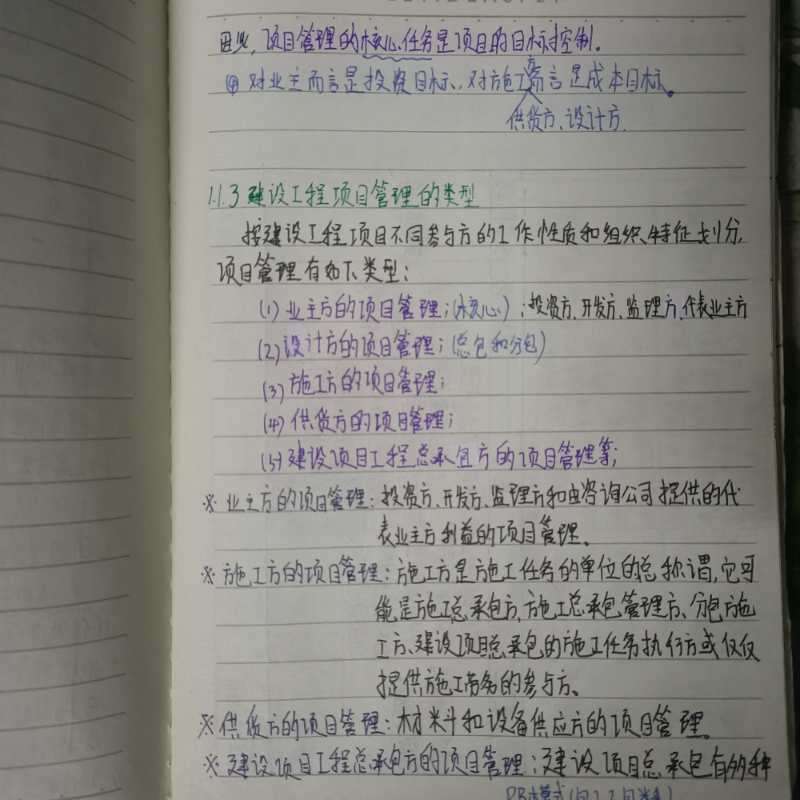 因此,项目管理的核心任务是项目的目标控制。
④ 对业主而言是投资目标,对施工方而言是成本目标。
供货方、设计方
1.1.3 建设工程项目管理的类型
按建设工程项目不同参与方的工作性质和组织特征划分,
项目管理有如下类型:
(1) 业主方的项目管理;(核心);投资方、开发方、监理方、代表业主方
(2) 设计方的项目管理;(总包和分包)
(3) 施工方的项目管理;
(4) 供货方的项目管理;
(5) 建设项目工程总承包方的项目管理等;
※ 业主方的项目管理:投资方、开发方、监理方和由咨询公司提供的代
表业主方利益的项目管理。
※ 施工方的项目管理:施工方是施工任务的单位的总称谓,它可
能是施工总承包方,施工总承包管理方、分包施
工方、建设项目总承包的施工任务执行方或仅仅
提供施工劳务的参与方。
※ 供货方的项目管理:材料和设备供应方的项目管理
※ 建设项目工程总承包方的项目管理:建设项目总承包有多种